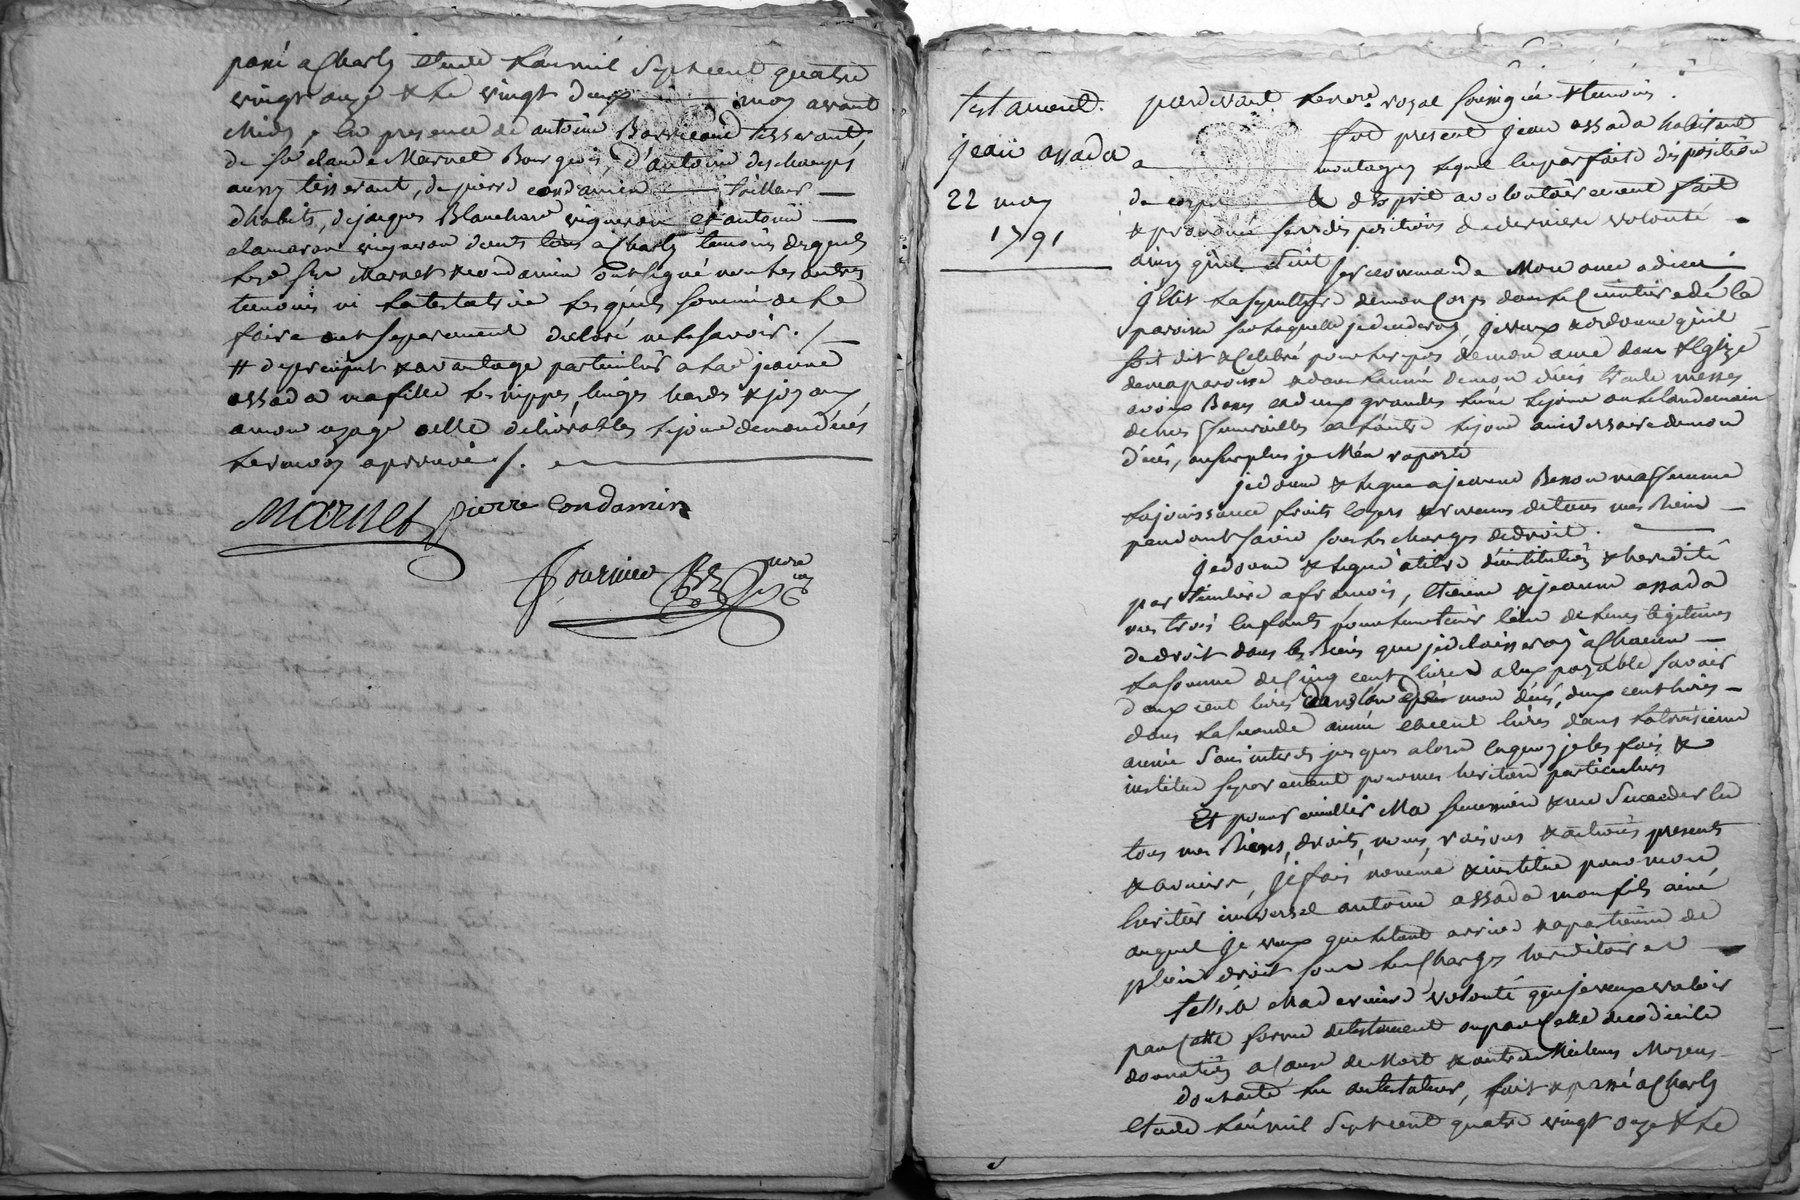 passé a Charly etude l'an mil sept cent quatre
vingt onze & le vingt deux may avant
Midy, en presence de antoine Barricand tisserand
de Sr claude Marnet Bourgeois, d'antoine deschamps
aussy tisserant, de pierre condamin tailleur
d'habits, de jacques Blanchard vigneron et antoine
clamaron vigneron dem.ts tous a Charly temoins desquels
led. Sr Marnet & condamin ont signé non les autres
temoins ni la testatrice lesquels sommé de le
faire ont separement declaré ne le savoir. /
# de preciput & avantage particulier a lad. jeanne
assada ma fille les nippes, linges hardes & joyaux
a mon usage a elle delivrables le jour de mon décés
le renvoy aprouvé /.
Marnet pierre Condamin
fournier nore
testament.
jean assada
22 may
1791
pardevant le nore. royal soussigné & temoins.
fut present jean assada habitant
a montagny lequel en parfaite disposition
de corps & d'esprit a volontairement fait
& prononcé ses dispositions de derniere volonté
ainsy qu'il suit je recommande Mon ame a dieu
j'elis la sepulture de mon Corps dans le Cimetiere de la
paroisse sur laquelle je decederay, je veux & ordonne qu'il
soit dit & Celebré pour le repos de mon ame dans l'Eglize
de ma paroisse & dans l'année de mon décés trente messes
a voix Basses et deux grandes l'une le jour ou le landemain
de mes funerailles et l'autre le jour aniversaire de mon
décés, au surplus je M'en raporte
je donne & legue a jeanne Benon ma femme
la jouissance fruits loyers & revenus de tous mes biens
pendant sa vie sous les charges de droit.
je donne & legue a titre d'institution & heredité
particuliere a francois, etienne & jeanne assada
mes trois enfants pour leur tenir lieu de leurs legitimes
de droit dans les biens que je delaisseray a Chacun
la somme de Cinq cent livres a eux payable savoir
deux cent livres dans l'an de mon décés, deux cent livres
dans la seconde année et cent livres dans la troisieme
année sans interets jusques alors en quoy je les fais &
institue separement pour mes heritiers particuliers
Et pour recueillir Ma succession & me Succeder en
tous mes biens, droits, noms, raisons & actions presents
& avenirs, je fais, nomme & institue pour mon
heritier universel antoine assada mon fils ainé
auquel je veux que le tout arrive & apartienne de
plein droit sous les Charges hereditaires
telle est Ma derniere volonté que je veux valoir
par Cette forme de testament ou par Celle de codicile
donnation a Cause de Mort & autres Meilleurs Moyens
dont acte lu au testateur, fait & passé a Charly
etude l'an mil sept cent quatre vingt onze & le